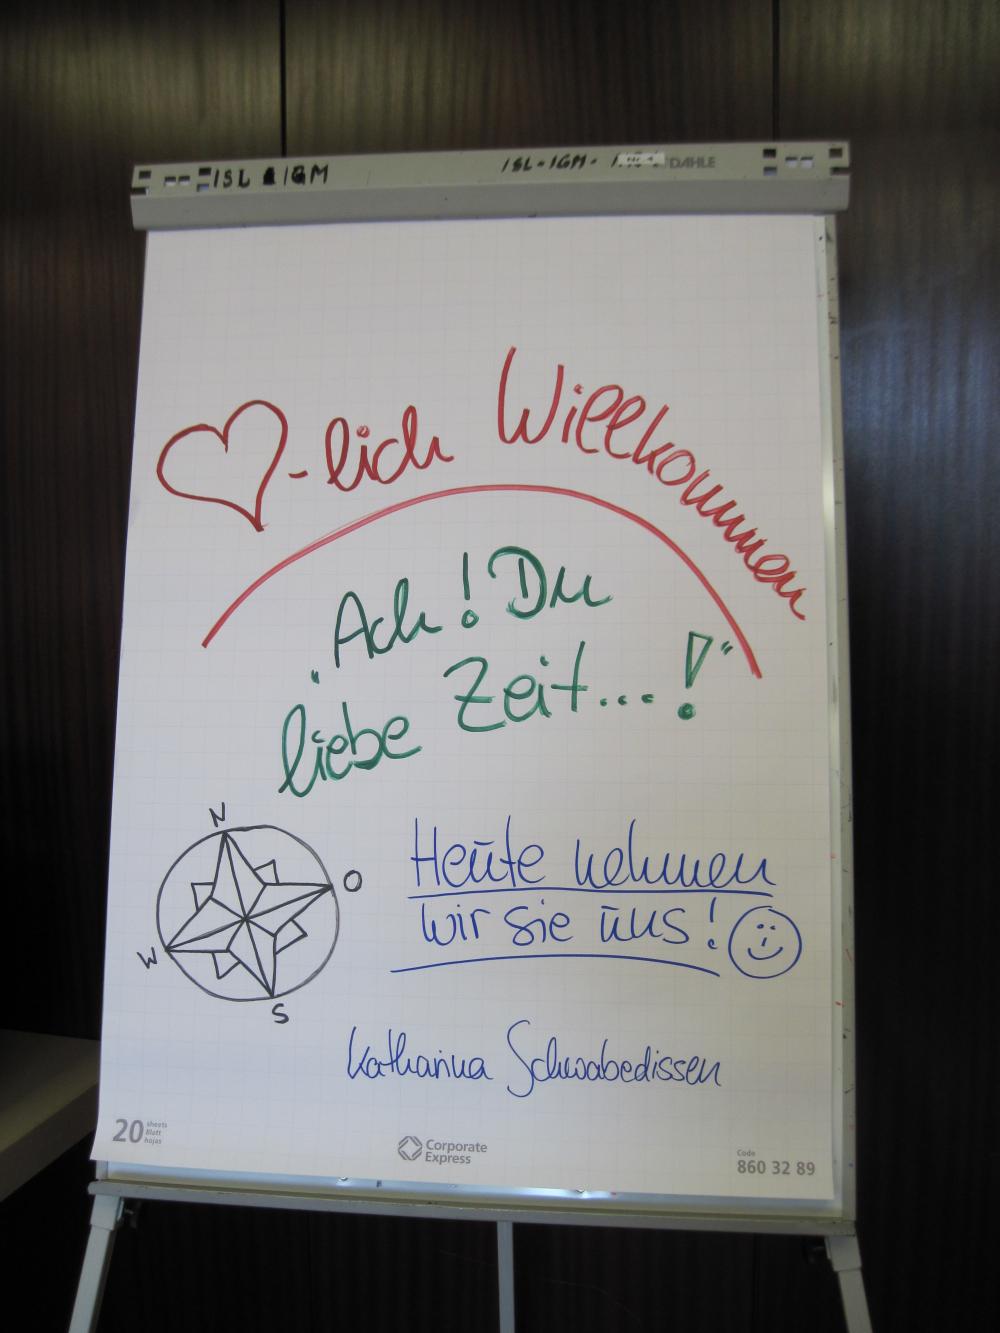 ISL & IGM
ISL-IGM-
DAHLE
-lich Willkommen
"Ach! Du
liebe Zeit...!"
N
O
W
S
Heute nehmen
wir sie uns!
Katharina Schwabedissen
20 sheets
Blatt
hojas
Corporate
Express
Code
860 32 89